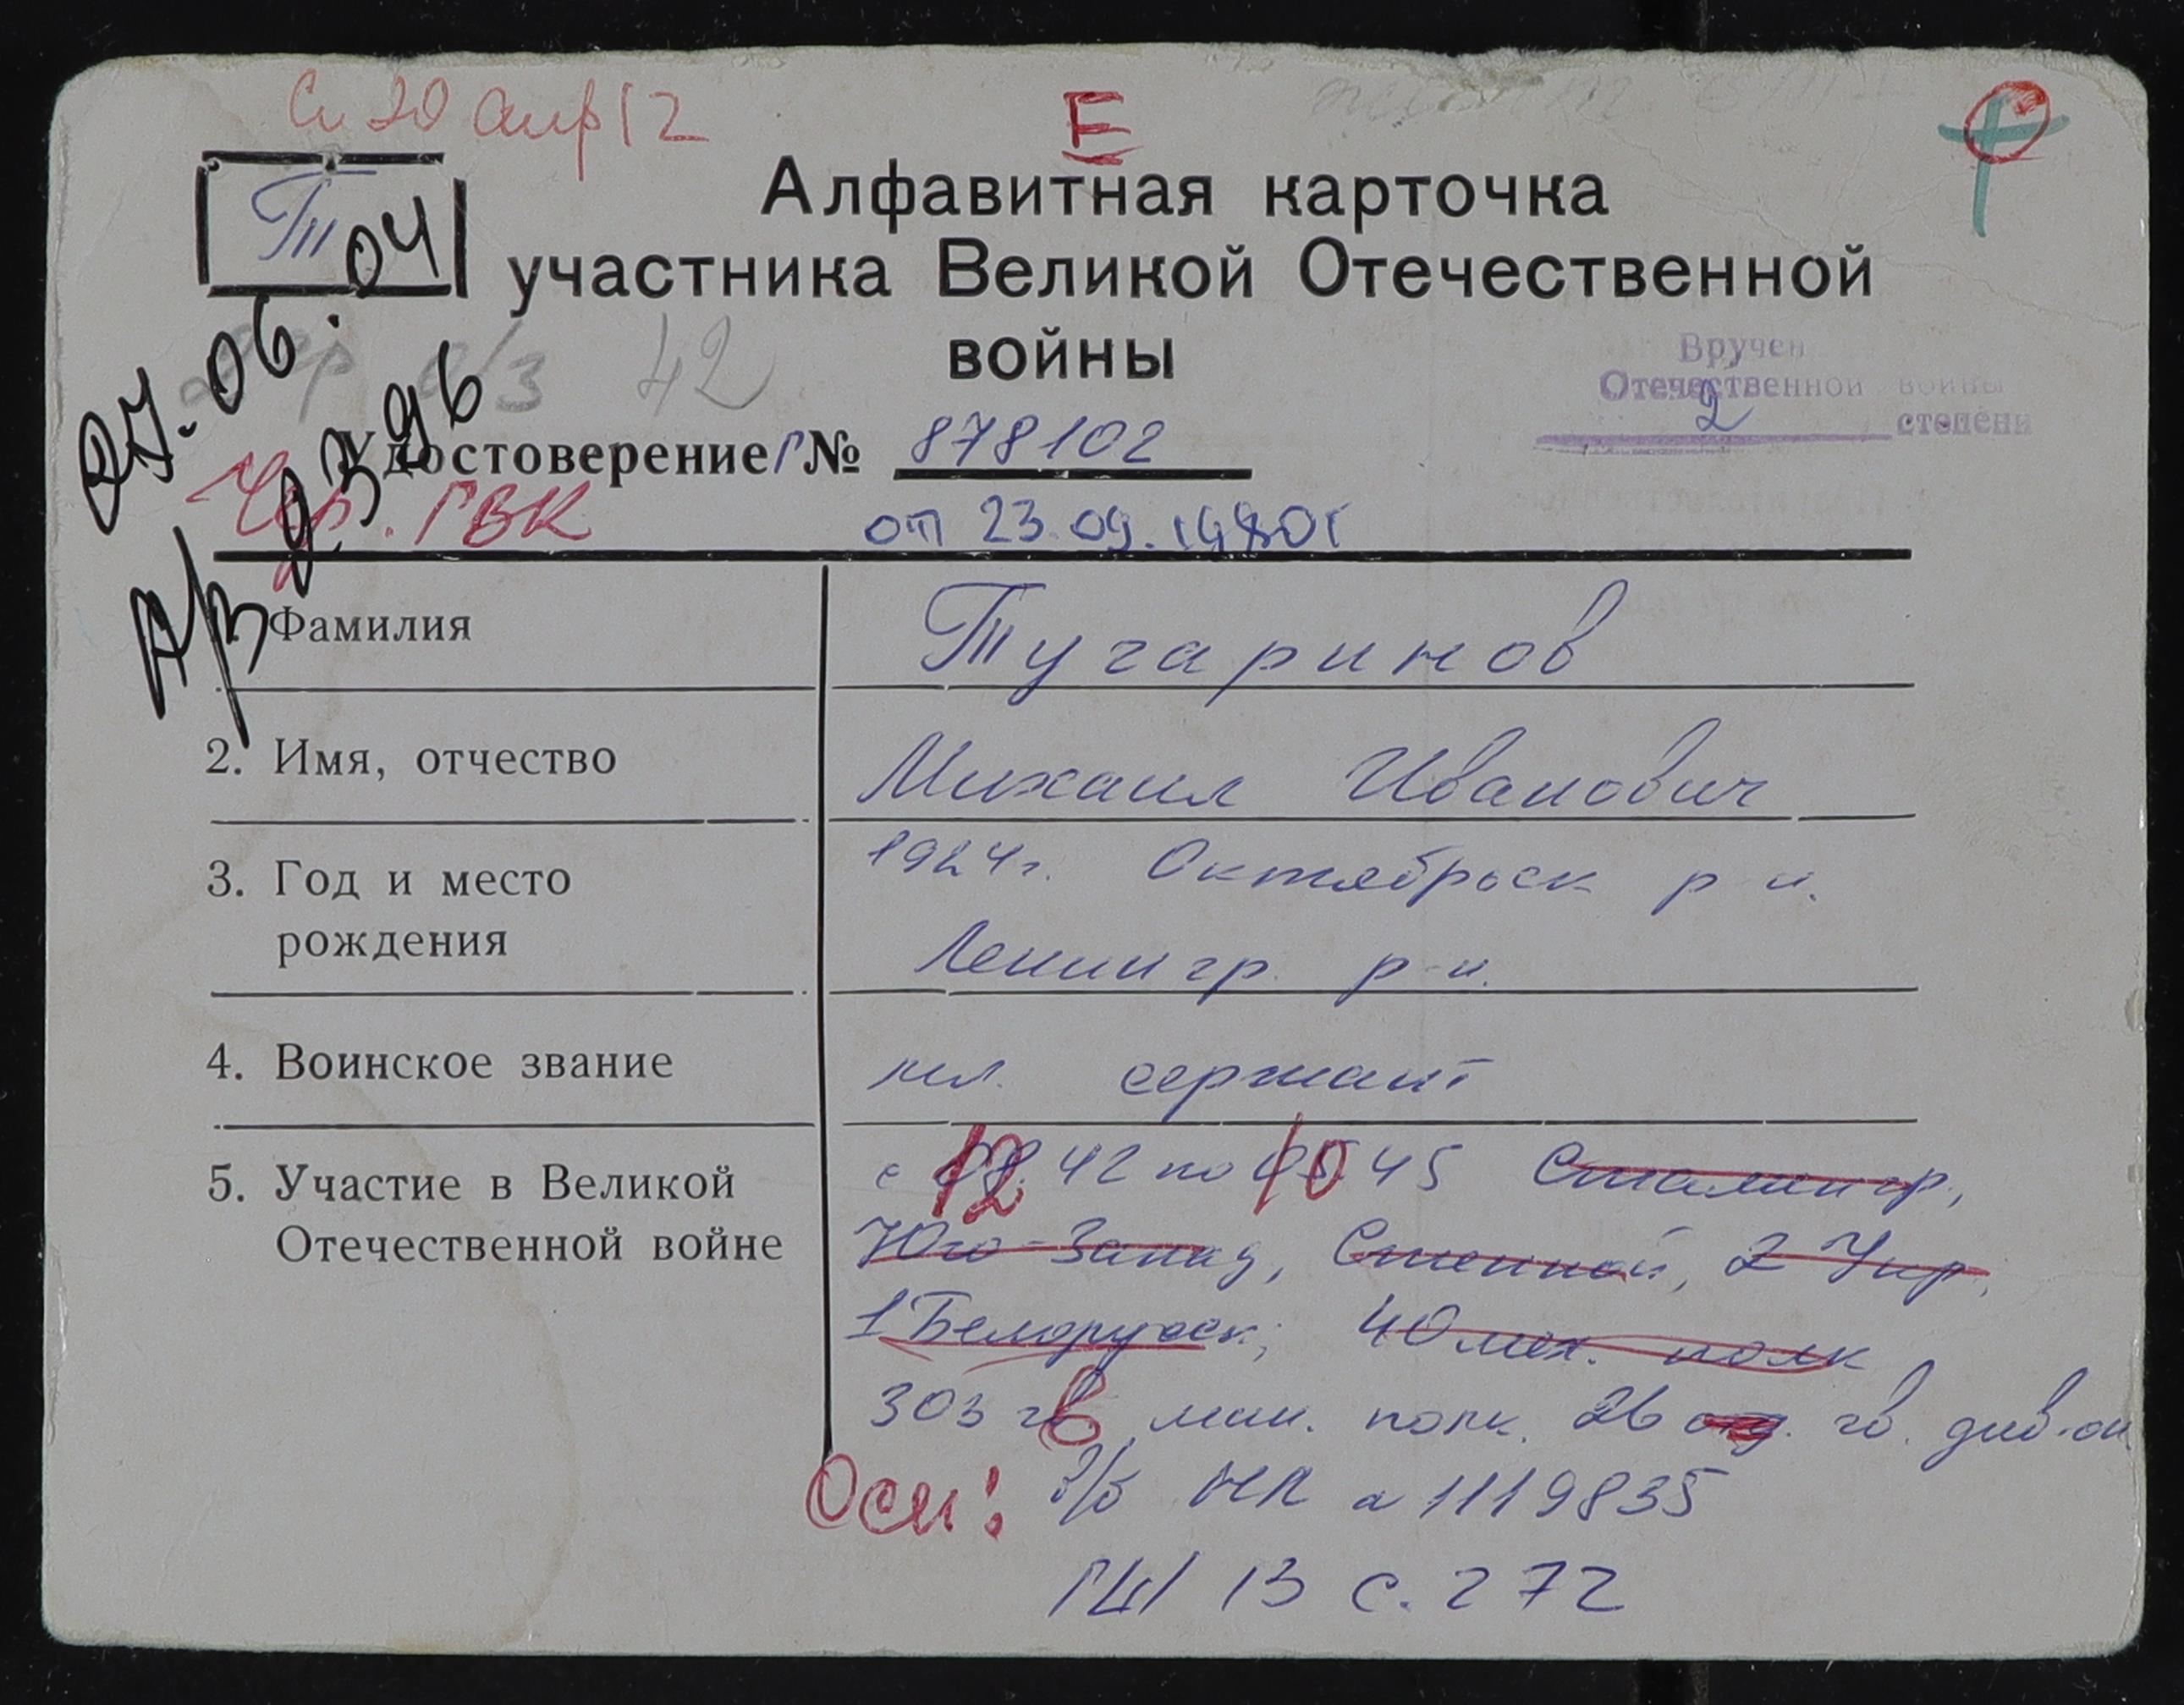 20 апр 12
Е
Т 04
Алфавитная карточка
участника Великой Отечественной
войны
Вручен
Отечественной войны
2 степени
42
27.06.
Удостоверение Г № 878102
Чер. ГВК
от 23.09.1980г
А/з 23 96
Фамилия Тугаринов
2. Имя, отчество Михаил Иванович
3. Год и место
рождения
1924г. Октябрьск р-н.
Ленингр. р-н.
4. Воинское звание мл. сержант
5. Участие в Великой
Отечественной войне
с 12.42 по 10 45 Сталингр,
Юго-Запад, Степной, 2 Укр,
1 Белорусск, 40 мех. полк
303 гв мин. полк. 26 отд. гв. див-он
Осн: в/б НЛ а 1119835
ГШ 13 с. 272